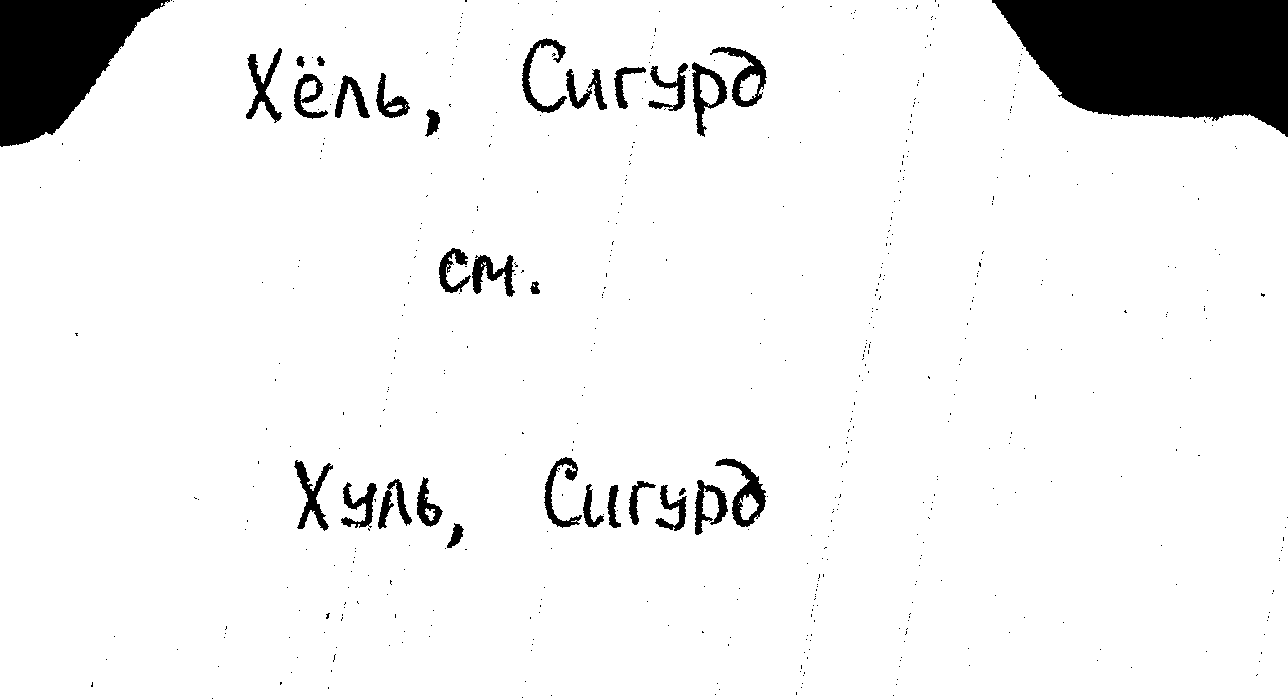 Хёль, Сигурд
см.
Хуль, Сигурд